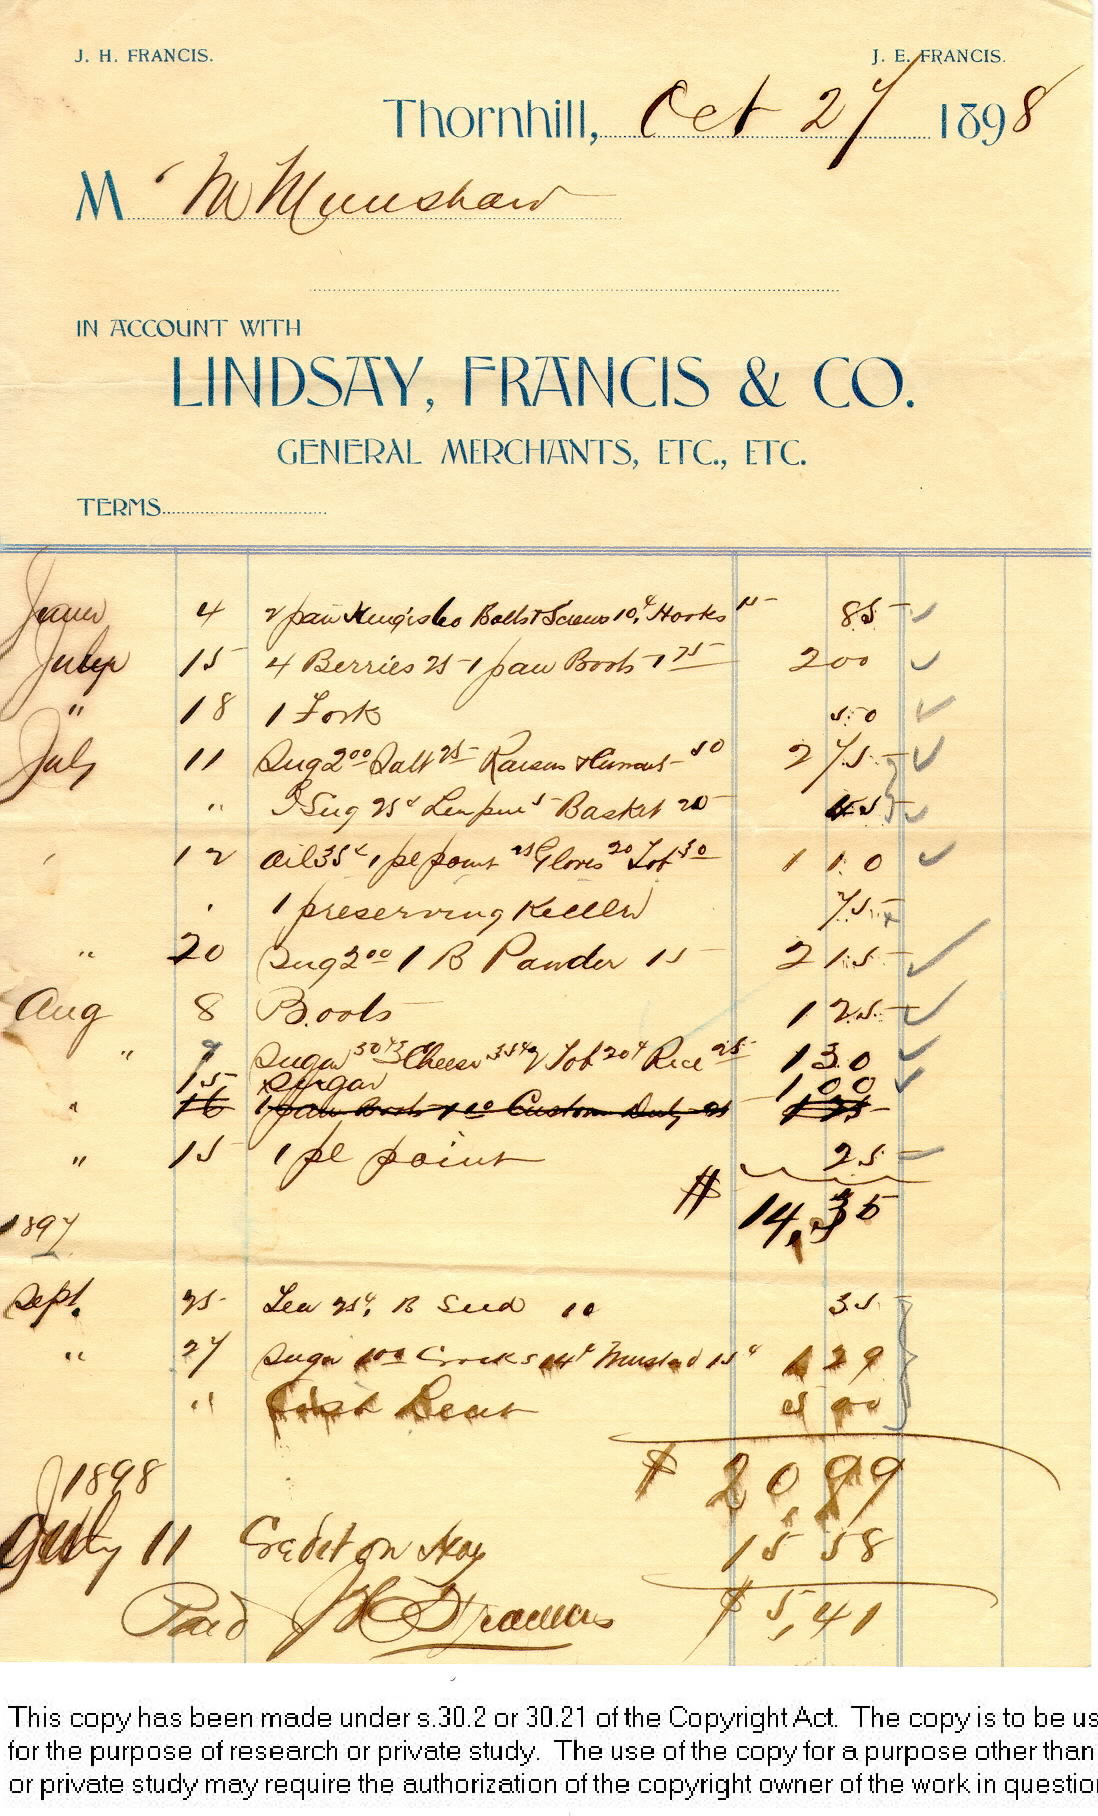 J. H. FRANCIS. J. E. FRANCIS.
Thornhill, Oct 27 1898
M r Munshaw
IN ACCOUNT WITH
LINDSAY, FRANCIS & CO.
GENERAL MERCHANTS, ETC., ETC.
TERMS
4 2 pair Bolts & Screws 10¢ Hooks 15 85
15 4 Berries 25 1 pair Boots 1 75 2 00
" 18 1 Fork 50
July 11 Sug 2 00 Salt 25 50 2 75
" Sug 25¢ 5 Basket 20 45
12 Oil 35¢ 1 25 Gloves 20 Tob 30 1 10
1 preserving Kettle 75
" 20 Sug 2 00 1 B Powder 15 2 15
Aug 8 Boots 1 25
" 9 Sugar Cheese Tob 20¢ Rice 25 1 30
15 Sugar 1 00
" 16 1 pair Boots Custom Duty
" 15 1 25
$ 14.35
1897
Sept. 25 Tea 25¢, B Seed 10 35
" 27 Sugar 1 00 Crocks 14¢ Mustard 15¢ 1 29
" Cash 5 00
$ 20.99
1898
July 11 Credit on 15 58
Paid J H Francis $ 5,41
This copy has been made under s.30.2 or 30.21 of the Copyright Act. The copy is to be us
for the purpose of research or private study. The use of the copy for a purpose other than
or private study may require the authorization of the copyright owner of the work in questio